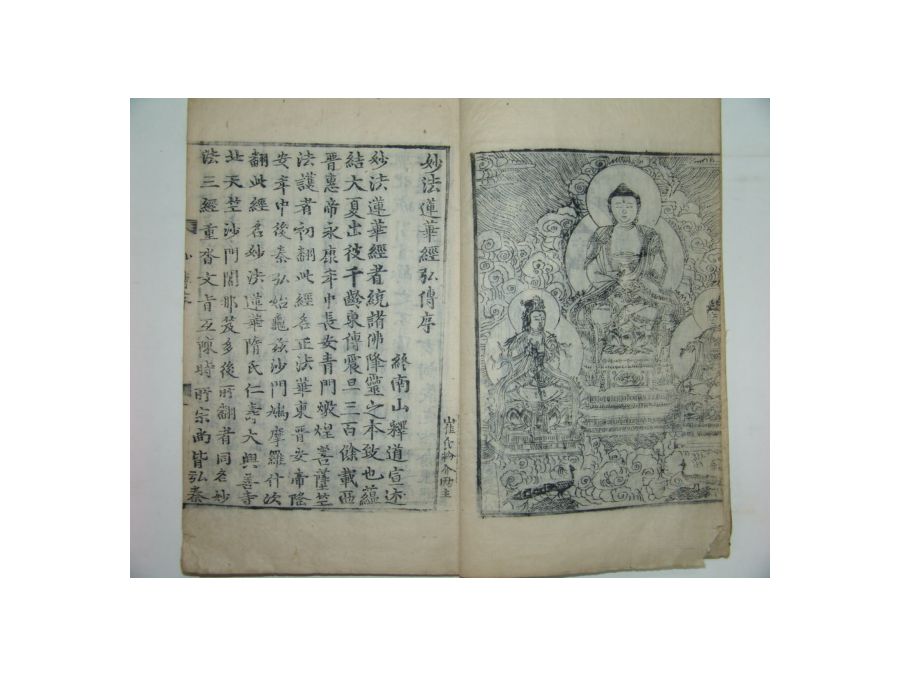 妙法蓮華經弘傳序
終南山釋道宣述
妙法蓮華經者統諸佛降靈之本致也蘊
結大夏出彼千齡東傳震旦三百餘載西
晉惠帝永康年中長安青門燉煌菩薩竺
法護者初翻此經名正法華東晉安帝隆
安年中後秦弘始龜茲沙門鳩摩羅什次
翻此經名妙法蓮華隋氏仁壽大興善寺
北天竺沙門闍那笈多後所翻者同名妙
法三經重沓文旨互陳時所宗尚皆弘秦